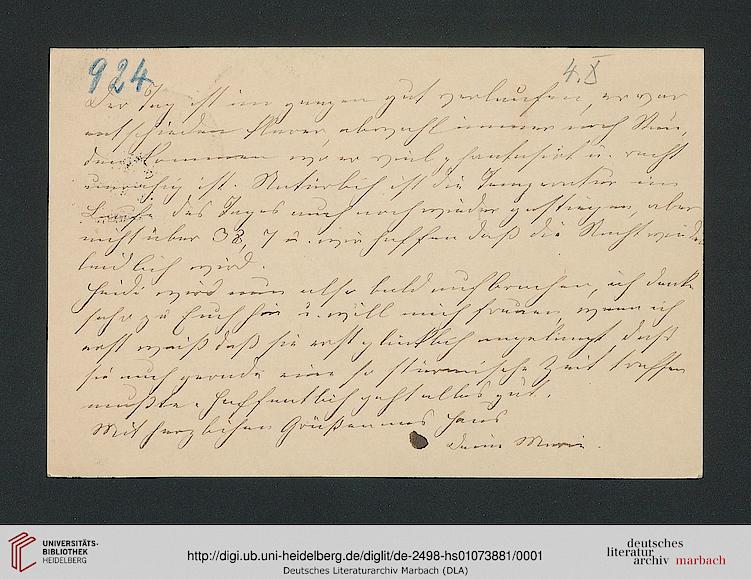 924
4. X
Der Tag ist im ganzen gut verlaufen, er war
entschieden klarer, obwohl immer noch Stun,
den kommen wo er viel phantasirt u. recht
unruhig ist. Natürlich ist die Temperatur im
Laufe des Tages auch noch wieder gestiegen, aber
nicht über 38,7 u. wir hoffen daß die Nacht wieder
leidlich wird.
Heidi wird nun also bald aufbrechen, ich denke
sehr zu Euch hin u. will mich freuen, wenn ich
erst weiß daß sie erst glücklich angelangt, daß
sie auch gerade eine so stürmische Zeit treffen
mußte. Hoffentlich geht alles gut.
Mit herzlichen Grüßen ans Haus
Deine Marie.
UNIVERSITÄTS-
BIBLIOTHEK
HEIDELBERG
http://digi.ub.uni-heidelberg.de/diglit/de-2498-hs01073881/0001
Deutsches Literaturarchiv Marbach (DLA)
deutsches
literatur
archiv marbach